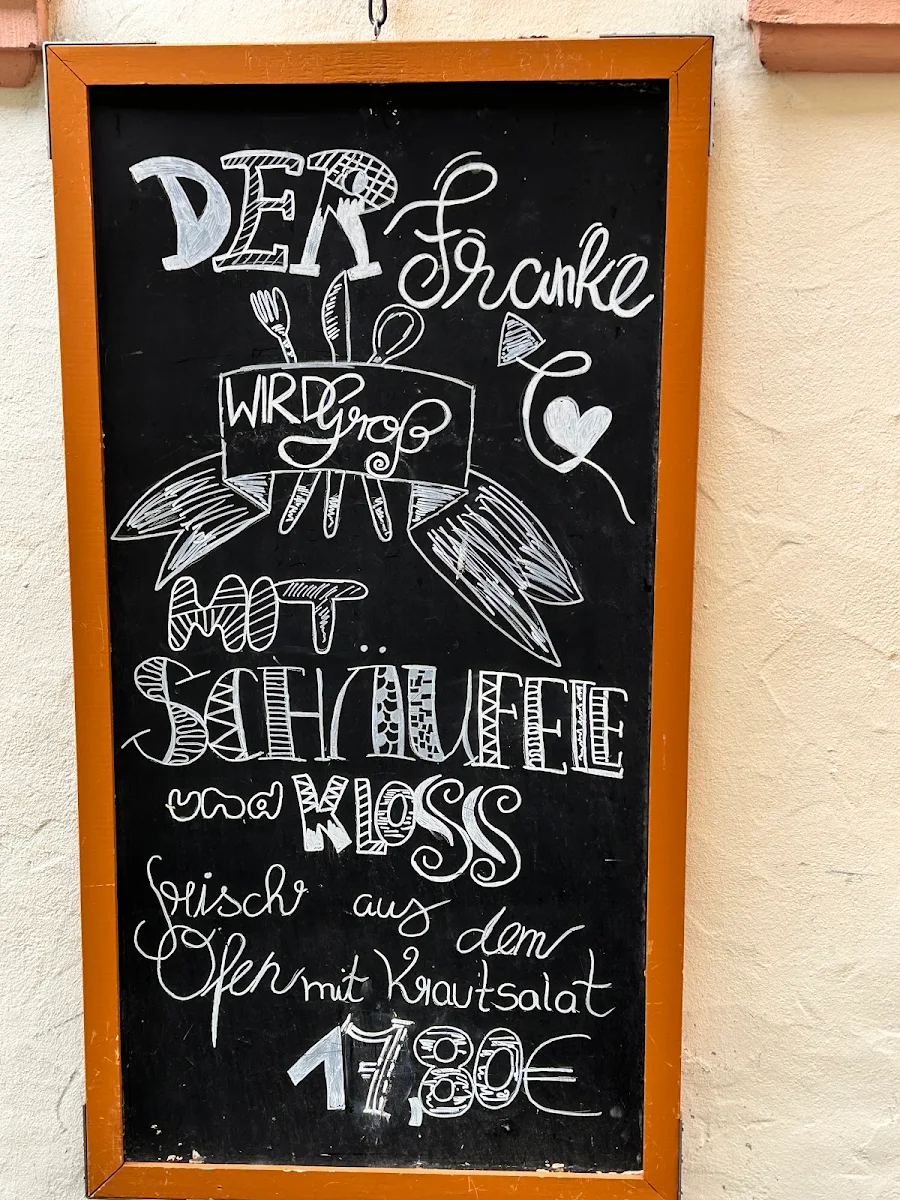 DER Franke
WIRD groß
MIT
SCHÄUFELE
und KLOSS
frisch aus dem
Ofen mit Krautsalat
17,80€